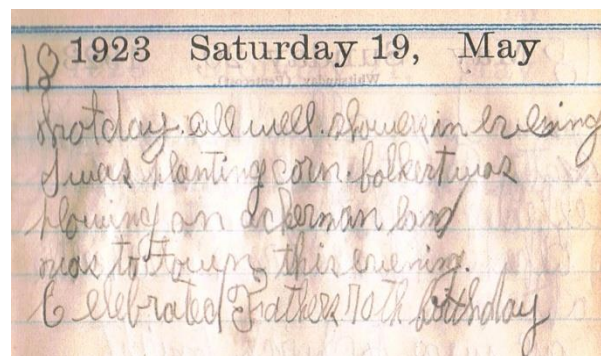 18 1923 Saturday 19, May
hot day. all well. shower in evening
I was planting corn. folkert was
plowing on ackerman land
was to Town this evening.
Celebrated Fathers 70th birthday